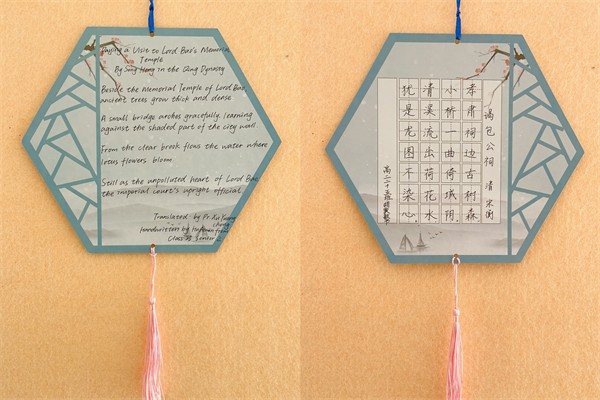 Paying a Visit to Lord Bao's Memorial
Temple
By Song Heng in the Qing Dynasty
Beside the Memorial Temple of Lord Bao,
ancient trees grow thick and dense
A small bridge arches gracefully, learning
against the shaded part of the city wall.
From the clear brook flows the water where
lotus flowers bloom
Still as the unpolluted heart of Lord Bao,
the imperial court's upright official
Translated by Pr Xu
Handwritten by from
Class 23 Senior 2
谒包公祠 清 宋衡
孝肃祠边古树森
小桥一曲倚城阴。
清溪流出荷花水
犹是龙图不染心。
高二二十三班